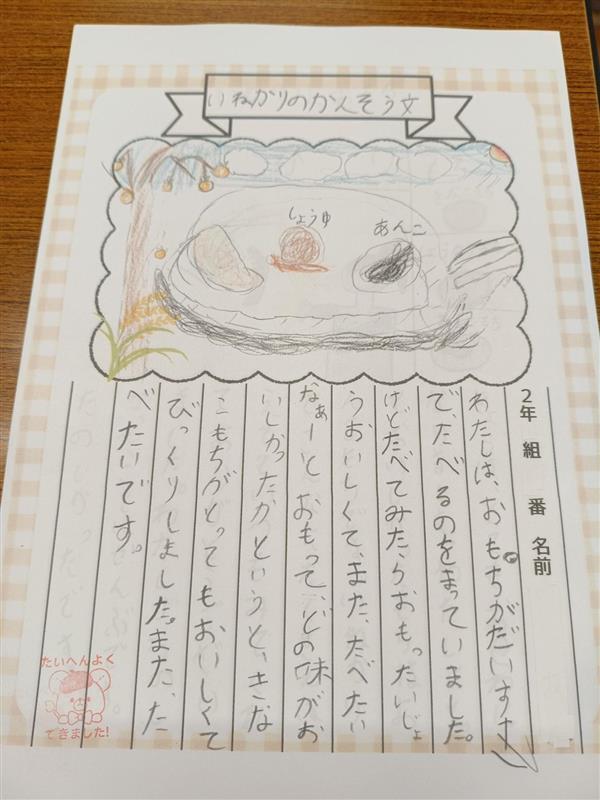 いねかりのかんそう文
しょうゆ
あんこ
2年 組 番 名前
わたしは、おもちがだいすき
で、たべるのをまっていました。
けどたべてみたらおもったいじょ
うおいしくて、また、たべたい
なぁーとおもって、どの味がお
いしかったかというと、きな
こもちがとってもおいしくて
びっくりしました。また、た
べたいです。
たいへんよく
できました!